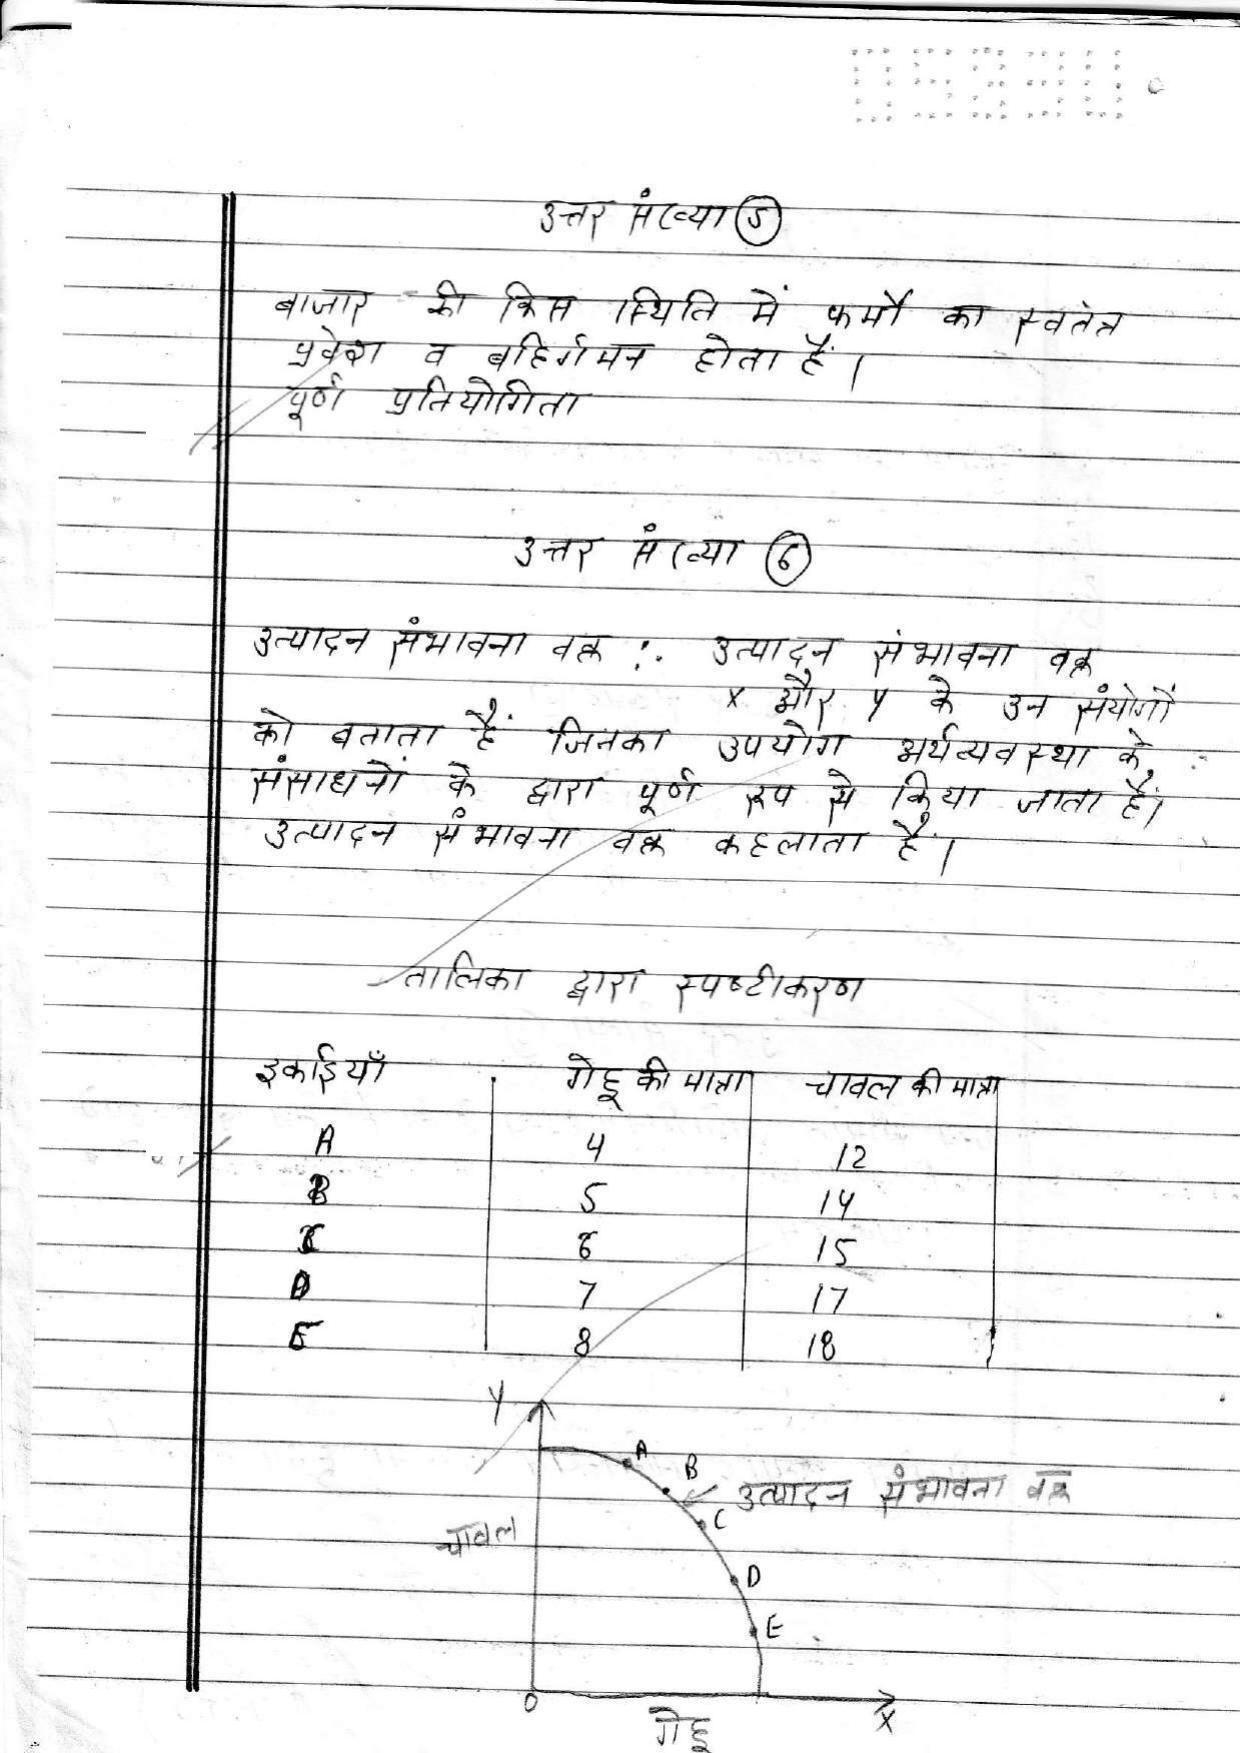 उत्तर संख्या 5
बाजार की किस स्थिति में फर्मो का स्वतंत्र
प्रवेश व बहिर्गमन होता हैं।
पूर्ण प्रतियोगिता
उत्तर संख्या 6
उत्पादन संभावना वक्र :. उत्पादन संभावना वक्र
x और y के उन संयोगों
को बताता हैं जिनका उपयोग अर्थव्यवस्था के
संसाधनों के द्वारा पूर्ण रूप से किया जाता हैं।
उत्पादन संभावना वक्र कहलाता हैं।
तालिका द्वारा स्पष्टीकरण
इकाईयाँ गेहू की मात्रा चावल की मात्रा
A 4 12
B 5 14
C 6 15
D 7 17
E 8 18
Y
A
B
उत्पादन संभावना वक्र
C
चावल
D
E
0 X
गेहू